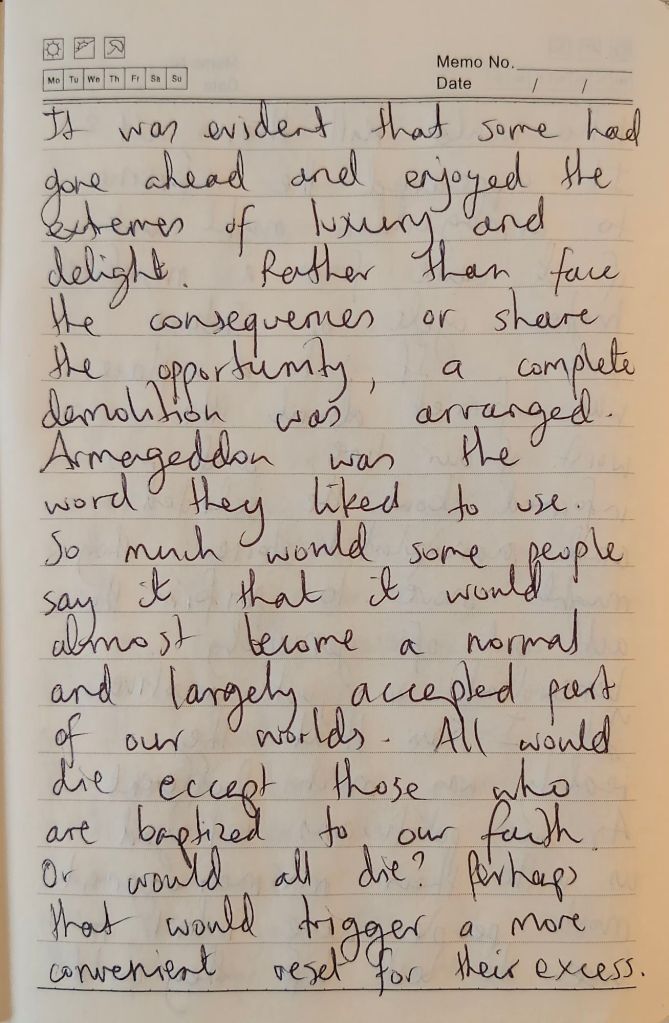 Memo No.
Mo Tu We Th Fr Sa Su
Date / /
It was evident that some had
gone ahead and enjoyed the
extremes of luxury and
delight. Rather than face
the consequences or share
the opportunity, a complete
demolition was arranged.
Armageddon was the
word they liked to use.
So much would some people
say it that it would
almost become a normal
and largely accepted part
of our worlds. All would
die eccept those who
are baptized to our faith.
Or would all die? Perhaps
that would trigger a more
convenient reset for their excess.